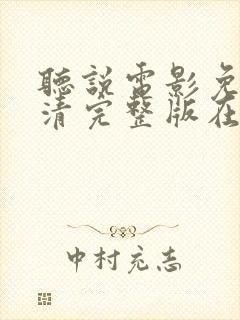 聽說電影免
清完整版在
中村充志